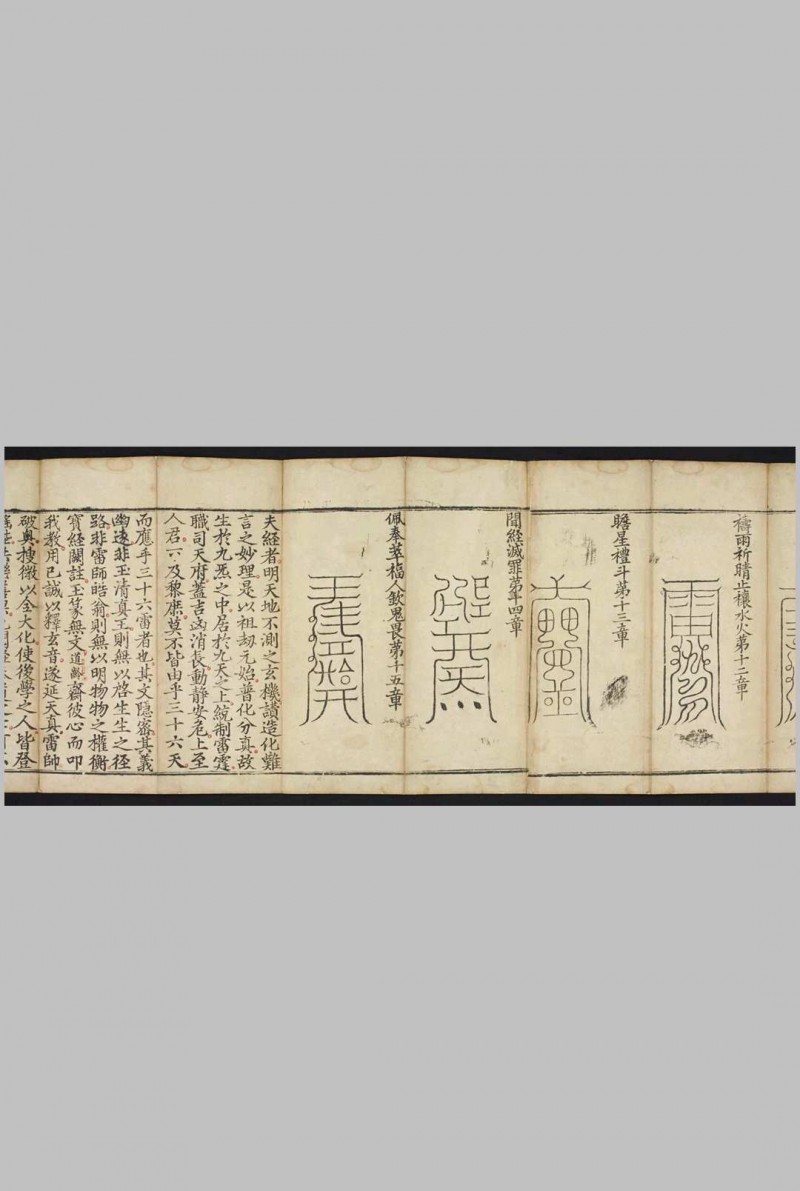 禱雨祈晴止穰水火第十二章
瞻星禮斗第十三章
聞經滅罪第十四章
佩奉萃福人欽鬼畏第十五章
夫経者明天地不測之玄機讃造化難
言之妙理是以祖刼元始普化分真故
生於九炁之中居於九天之上統制雷霆
職司天府蓋吉凶消長動靜安危上至
人君下及黎庶莫不皆由乎三十六天
而應乎三十六雷者也其文隱密其義
幽遠非玉清真王則無以啓生生之徑
路非雷師皓翁則無以明物物之權衡
寳経闕註玉篆無文道齡齋彼心而叩
我教用已誠以釋玄音遂延天真雷師
破奥搜微以全大化使後學之人皆登